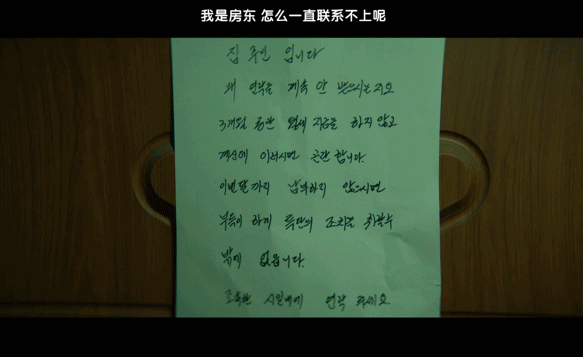 我是房东 怎么一直联系不上呢
집 주인 입니다
왜 연락을 계속 안 받으시는지요
3개월 동안 월세 지급을 하지 않고
계신데 이러시면 곤란 합니다.
이번달 까지 납부하지 않으시면
부득이 하게 특단의 조치를 취할수
밖에 없읍니다.
조속한 시일내에 연락 주세요.